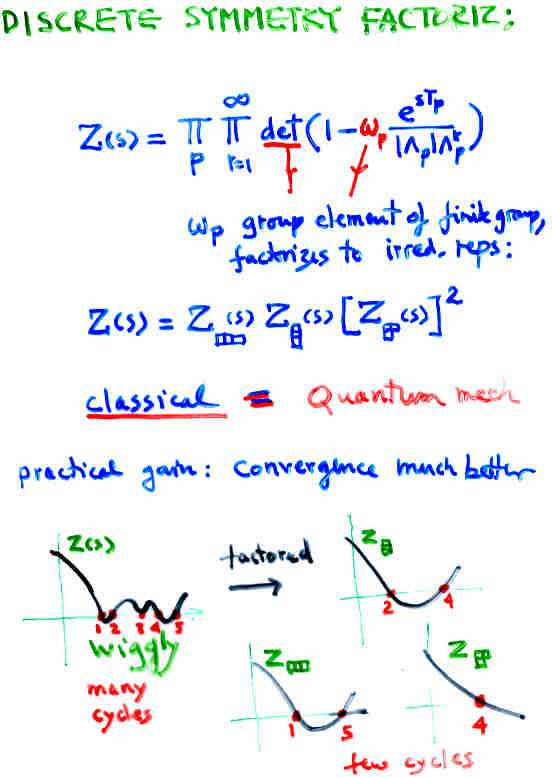 DISCRETE SYMMETRY FACTORIZ:
Z(s) = ∏_p ∏_{r=1}^∞ det(1 - ω_p e^{sT_p} / |Λ_p|Λ_p^r)
ω_p group element of finite group,
factorizes to irred. reps:
Z(s) = Z_□□□(s) Z_日(s) [Z_⊞(s)]²
classical = Quantum mech
practical gain: convergence much better
Z(s)
factored
Z
1 2 3 4 5
2 4
wiggly
many
cycles
Z
Z
1 5
4
few cycles